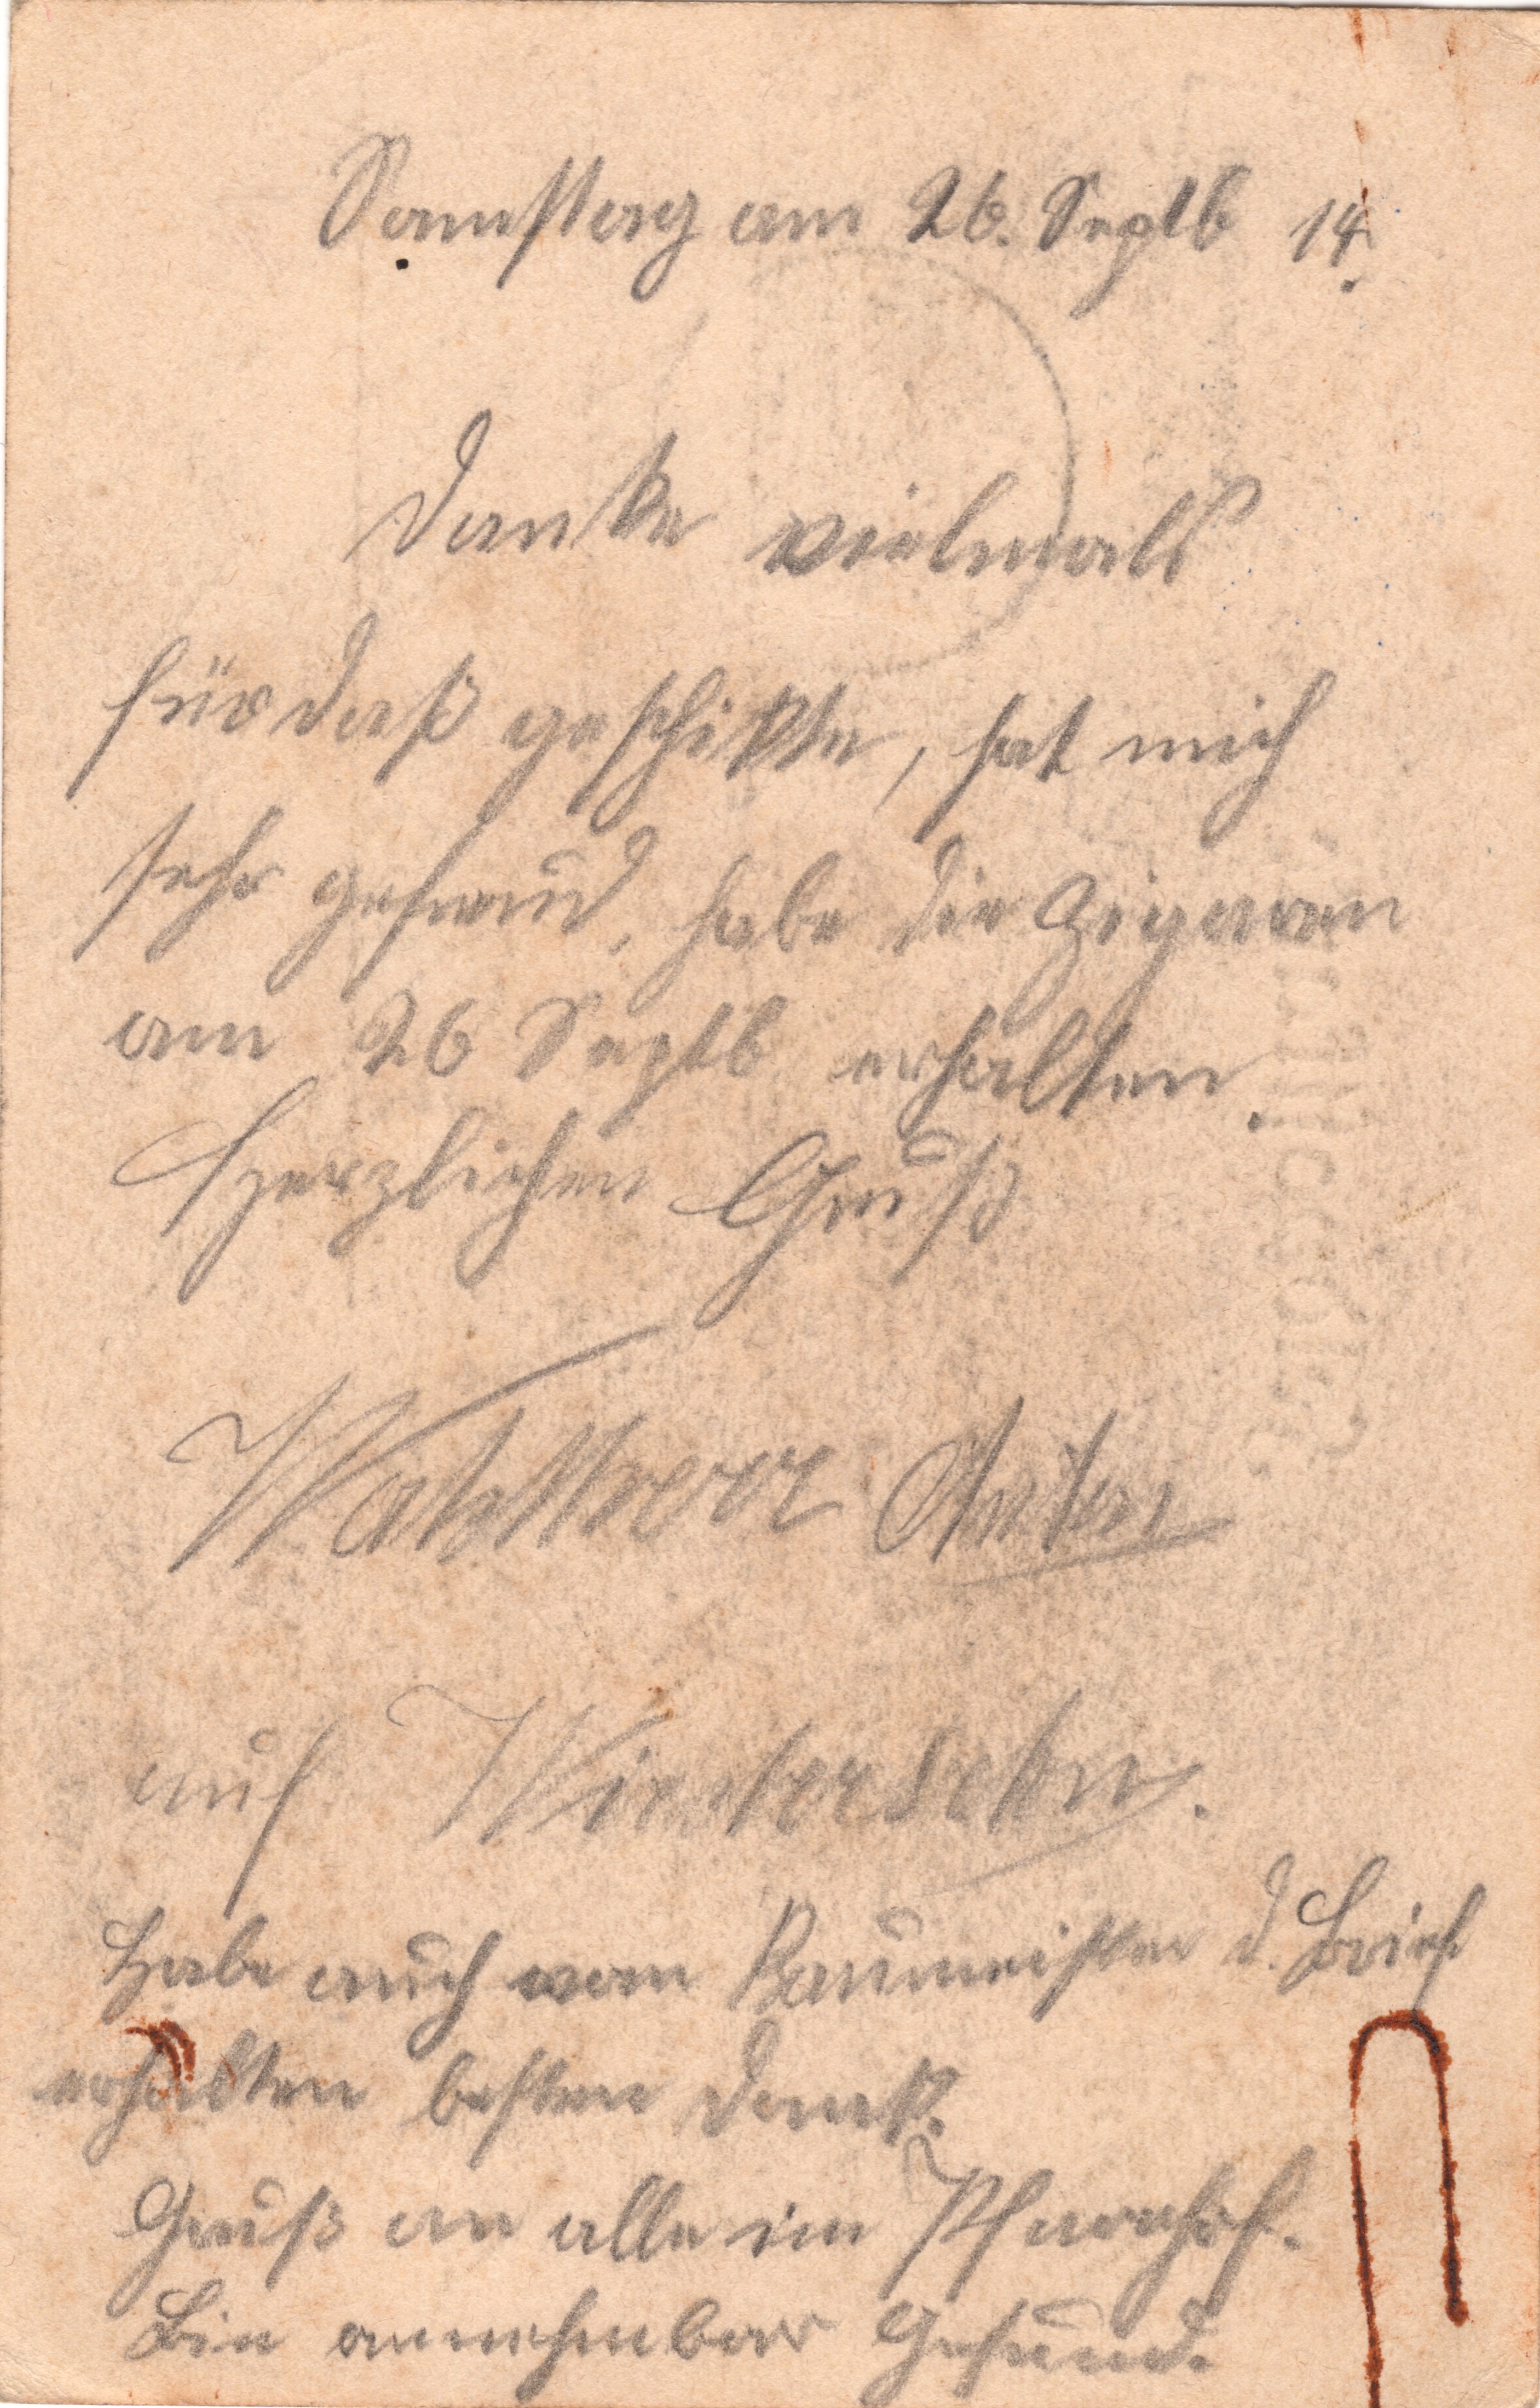 Samstag am 26. Septb 14.
Danke vielmals
für daß geschikte, hat mich
sehr gefreud, habe die Zigaren
am 26 Septb erhalten.
Herzlichen Gruß
Anton
auf Wiedersehn.
Habe auch vom Baumeister d. Brief
erhalten besten Dank.
Gruß an alle im Pfarrhof.
Bin annehmbar Gesund.